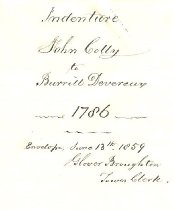 Indenture
John Colly
to
Burrill Devereux
1786
Envelope, June 13th 1859
Glover Broughton
Town Clerk.